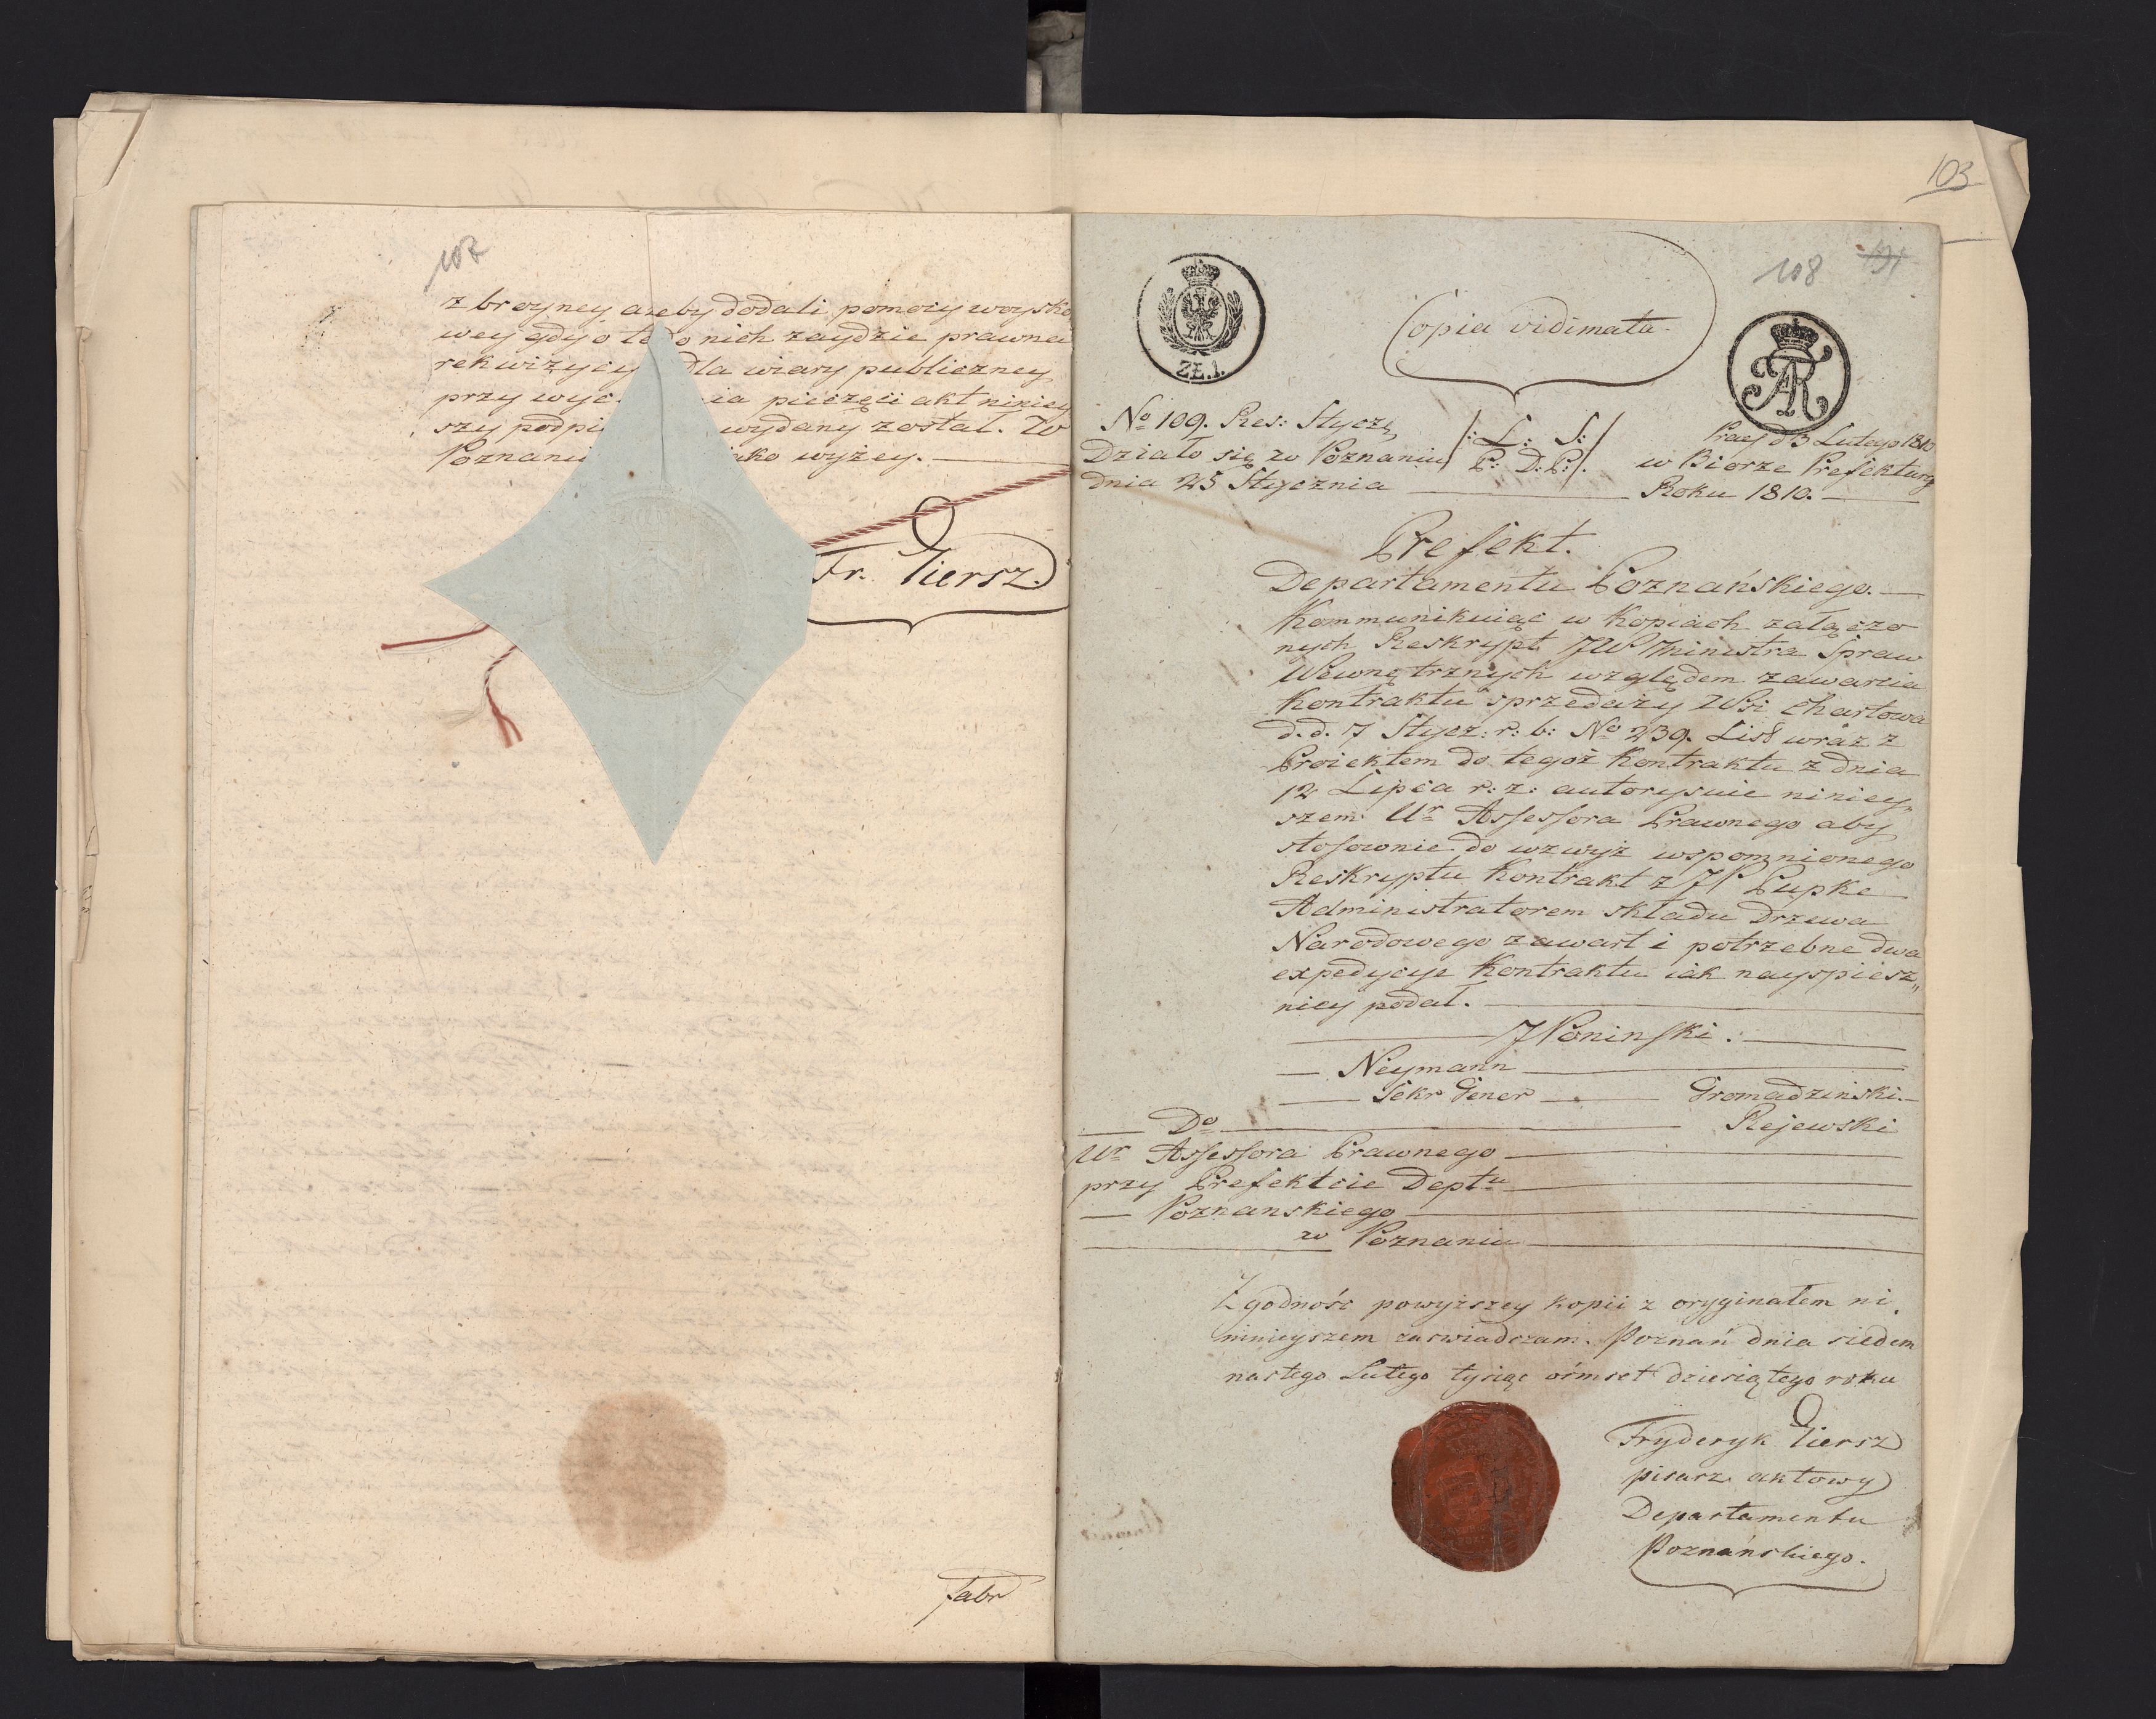 107
zbroyney ażeby dodali pomocy woysko
wey gdy o to do nich zaydzie prawna
rekwizycya dla wiary publiczney
przy wyc ia pieczęci akt niniey
szy podpi wydany został. W
Poznaniu jako wyżey.
Fr. Giersz
Fabr
103
108
ZŁ.1.
AR
Copia vidimata.
No 109. Res: Stycz,
Działo się w Poznaniu
dnia 25 Stycznia
/: L: S:/
P: D: P:/.
Praes d 3 Lutego 1810
w Biorze Prefektury
Roku 1810.
Prefekt.
Departamentu Poznańskiego.
Kommunikuiąc w Kopiach załączo
nych Reskrypt JW Ministra Spraw
Wewnętrznych względem zawarcia
Kontraktu sprzedaży Wsi Chartowa
d.d. 7 Stycz: r: b: No 239. List wraz z
Proiektem do tegoż Kontraktu z dnia
12 Lipca r: z: autorysuie niniey„
szem Ur Assessora Prawnego aby
stosownie do wzwyż wspomnionego
Reskryptu Kontrakt z JP Lupke
Administratorem składu Drzewa
Narodowego zawarł i potrzebne dwa
expedycye Kontraktu iak nayspiesz„
niey podał.
J Poninski:
Neymann
Sekr Gener
Gromadzinski
Rejewski
Do
Ur Assessora Prawnego
przy Prefekcie Deptu
Poznanskiego
w Poznaniu
Zgodność powyższey kopii z oryginałem ni
ninieyszem zaswiadczam. Poznań dnia siedem
nastego Lutego tysiąc ośmset dziesiątego roku
Fryderyk Giersz
pisarz aktowy
Departamentu
Poznańskiego.